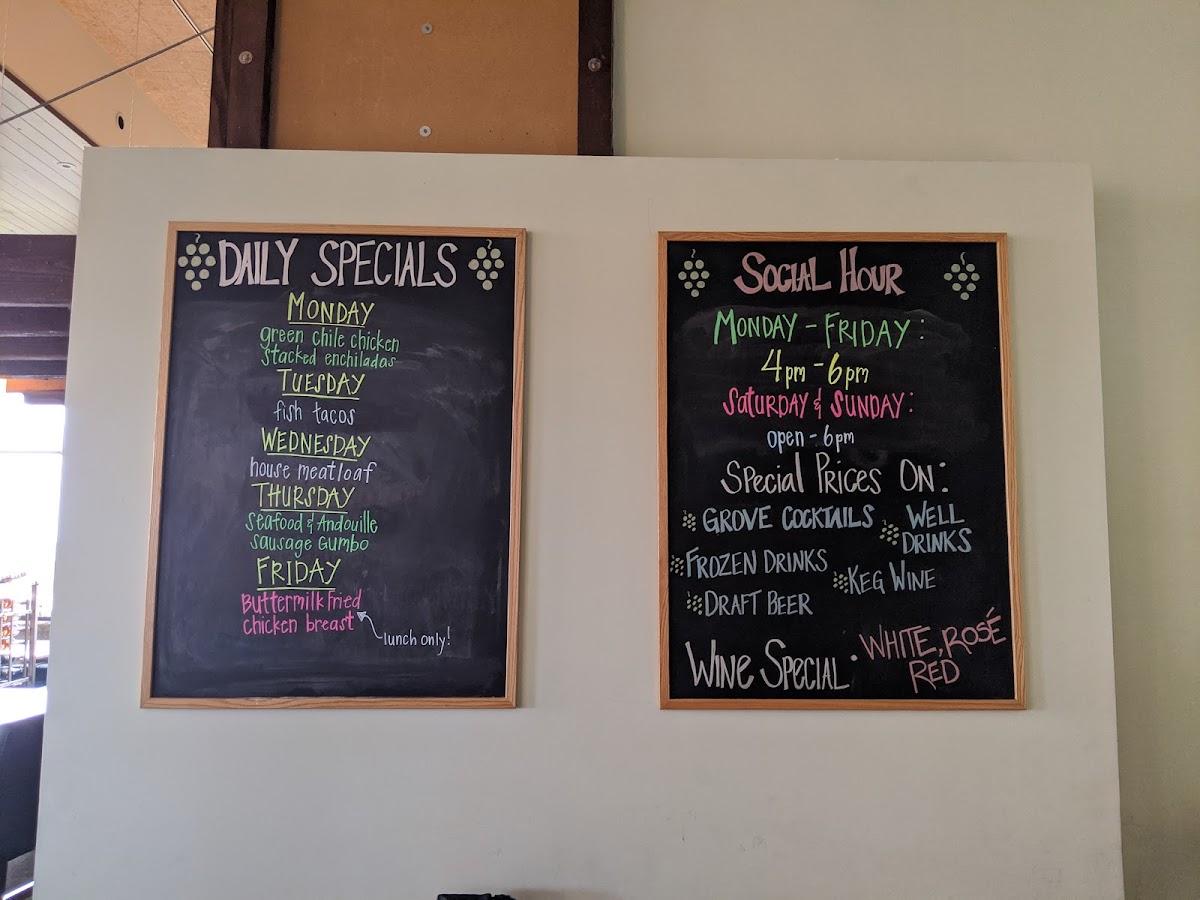 DAILY SPECIALS
MONDAY
green chile chicken
stacked enchiladas
TUESDAY
fish tacos
WEDNESDAY
house meatloaf
THURSDAY
Seafood & Andouille
Sausage Gumbo
FRIDAY
Buttermilk fried
chicken breast
lunch only!
SOCIAL HOUR
MONDAY - FRIDAY:
4pm - 6pm
SATURDAY & SUNDAY:
open - 6pm
Special Prices On:
GROVE COCKTAILS
WELL
DRINKS
FROZEN DRINKS
KEG WINE
DRAFT BEER
WINE SPECIAL: WHITE, ROSÉ
RED